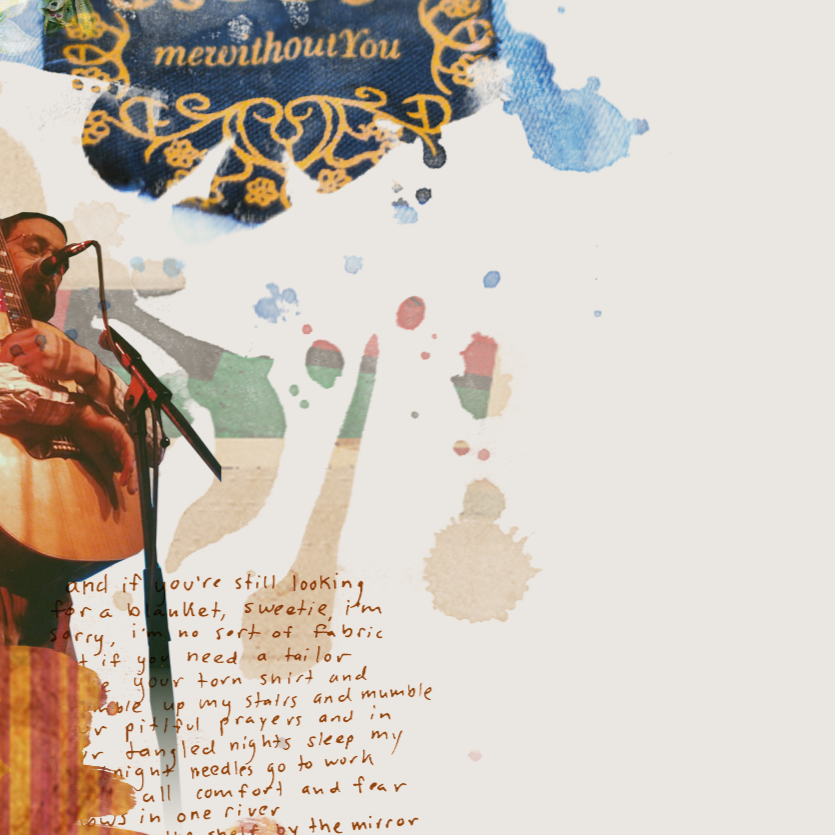 mewithoutYou
and if you're still looking
for a blanket, sweetie, i'm
sorry, i'm no sort of fabric
t if you need a tailor
e your torn shirt and
mble up my stairs and mumble
r pitiful prayers and in
r tangled nights sleep my
night needles go to work
all comfort and fear
ows in one river
the shelf by the mirror